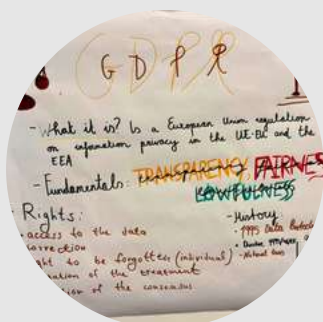 GDPR
- What it is? Is a European Union regulation
on information privacy in the UE-EU and the
EEA
- Fundamentals: TRANSPARENCY, FAIRNESS
LAWFULNESS
Rights:
access to the data
correction
to be forgotten (individual)
of the treatment
of the consensus
- History:
1995 Data